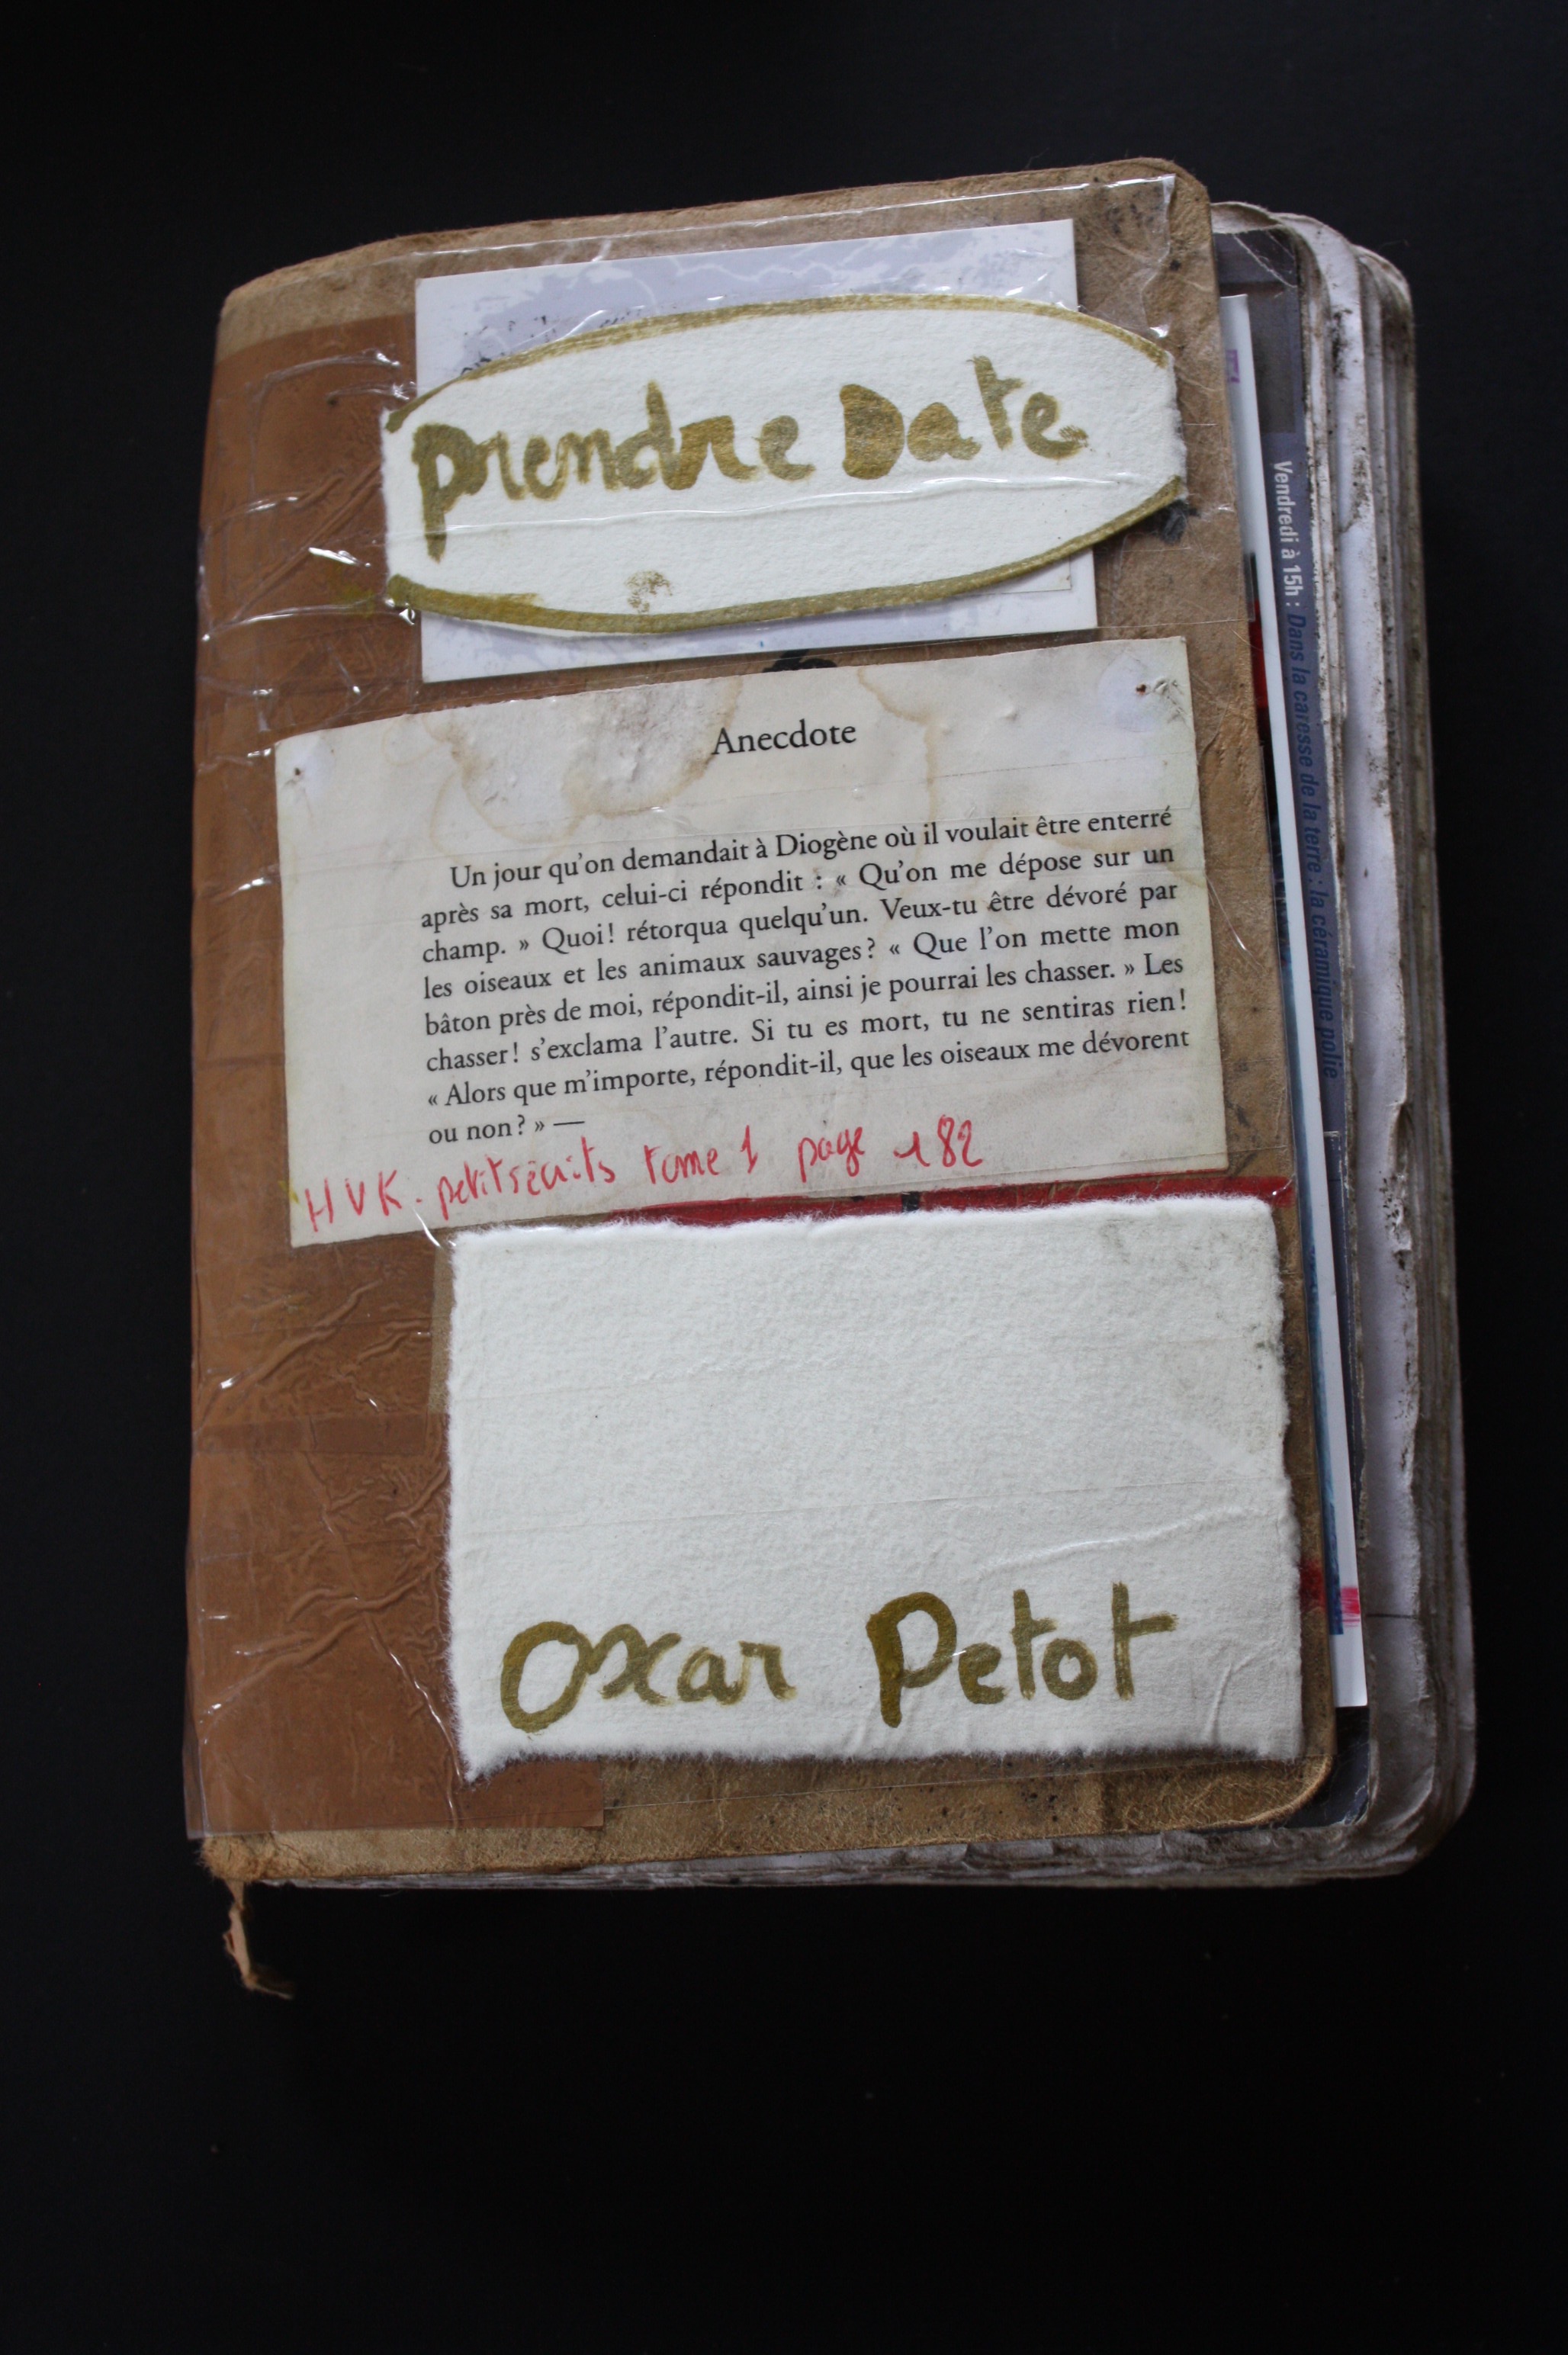 prendre Date
Anecdote
Un jour qu'on demandait à Diogène où il voulait être enterré
après sa mort, celui-ci répondit : « Qu'on me dépose sur un
champ. » Quoi! rétorqua quelqu'un. Veux-tu être dévoré par
les oiseaux et les animaux sauvages? « Que l'on mette mon
bâton près de moi, répondit-il, ainsi je pourrai les chasser. » Les
chasser! s'exclama l'autre. Si tu es mort, tu ne sentiras rien!
« Alors que m'importe, répondit-il, que les oiseaux me dévorent
ou non? » —
HVK. petits écrits tome 1 page 182
Oxar Petot
Vendredi à 15h : Dans la caresse de la terre : la céramique polie